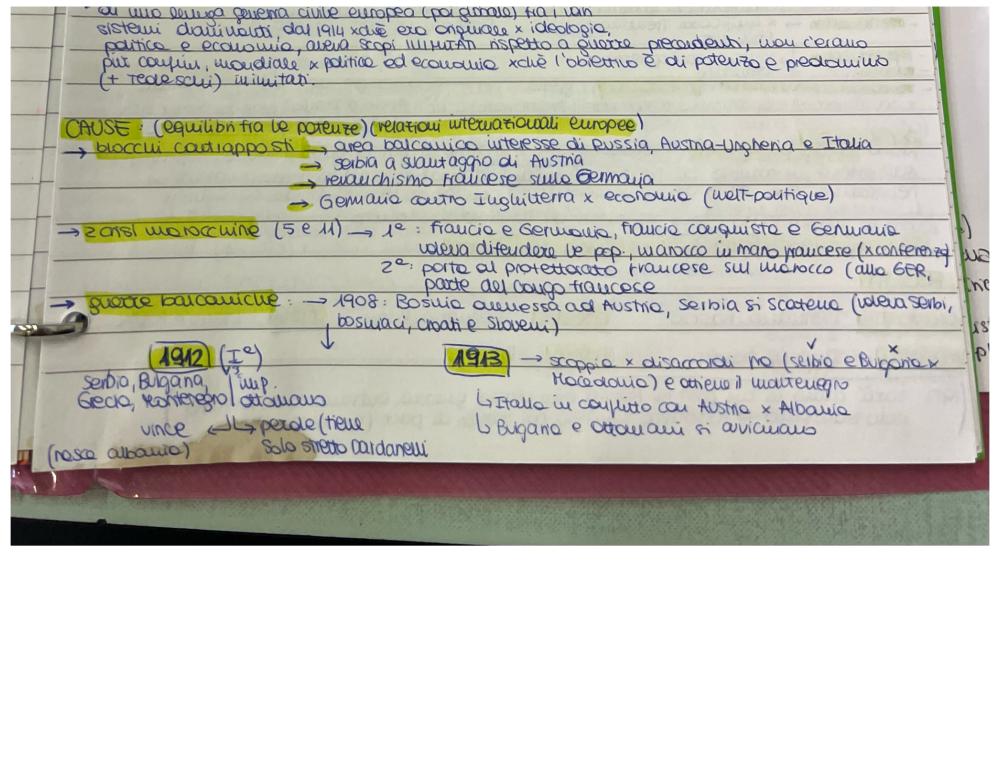 di una lunga guerra civile europea (poi globale) fra i vari
sistemi dominanti, dal 1914 xchè era originale x ideologia,
politica e economia, aveva scopi ILLIMITATI rispetto a guerre precedenti, non c'erano
più confini, mondiale x politica ed economia xchè l'obiettivo è di potenza e predominio
(+ Tedeschi) illimitati.
CAUSE: (equilibri fra le potenze) (relazioni internazionali europee)
→ blocchi contrapposti → area balcanica interesse di Russia, Austria-Ungheria e Italia
→ serbia a svantaggio di Austria
→ revanchismo francese sulla Germania
→ Germania contro Inghilterra x economia (welt-politique)
→ 2 crisi marocchine (5 e 11) → 1ª: Francia e Germania, Francia conquista e Germania
voleva difendere le pop, marocco in mano francese (x conferenza)
2ª: porta al protettorato francese sul marocco (alla GER,
parte del congo francese
→ guerre balcaniche: → 1908: Bosnia annessa ad Austria, Serbia si scatena (voleva serbi,
bosniaci, croati e sloveni)
1912 (Iª)
Serbia, Bulgaria, imp.
Grecia, Montenegro ottomano
vince ↔ perde (tiene
(nasce albania) solo stretto Dardanelli
1913 → scoppia x disaccordi fra (serbia e Bulgaria x
Macedonia) e ottiene il montenegro
↳ Italia in conflitto con Austria x Albania
↳ Bulgaria e ottomani si avvicinano